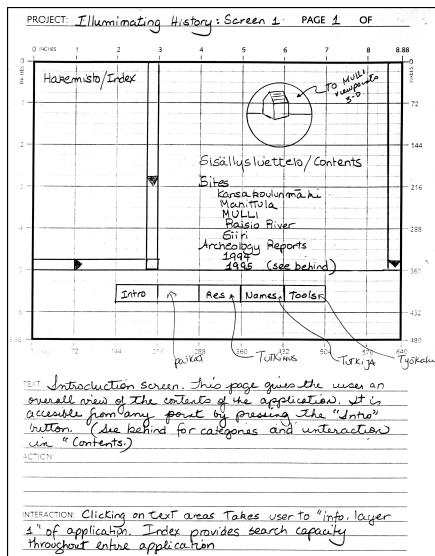 PROJECT: Illuminating History: Screen 1 PAGE 1 OF
0 INCHES 1 2 3 4 5 6 7 8 8.88
Hakemisto/Index
TO MULLI
viewpoints
3-D
72
144
216
288
360
432
480
Sisällysluettelo/Contents
Sites
Kansakoulunmäki
Mahittula
MULLI
Raisio River
Siiri
Archeology Reports
1994
1995 (see behind)
Intro Res Names Tools
72 144 216 288 360 432 504 576 640
paikat Tutkimus Tutkija Työkalu
TEXT: Introduction screen. This page gives the user an
overall view of the contents of the application. It is
accesible from any point by pressing the "Intro"
button. (See behind for categories and interaction
in "Contents.)
ACTION:
INTERACTION: Clicking on text areas takes user to "info. layer
1" of application. Index provides search capacity
throughout entire application